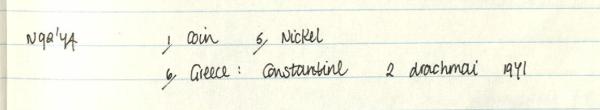 1, Coin 5, Nickel
6, Greece : Constantine 2 drachmai 1971